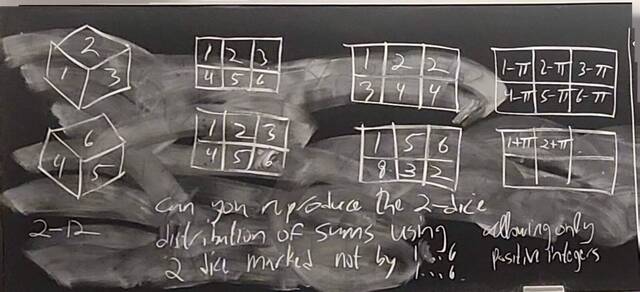 2
1 3
1 2 3
4 5 6
1 2 2
3 4 4
1-π 2-π 3-π
4-π 5-π 6-π
6
4 5
1 2 3
4 5 6
1 5 6
8 3 2
1+π 2+π
2-12
can you reproduce the 2-dice
distribution of sums using
2 dice marked not by 1...6
1...6
allowing only
positive integers